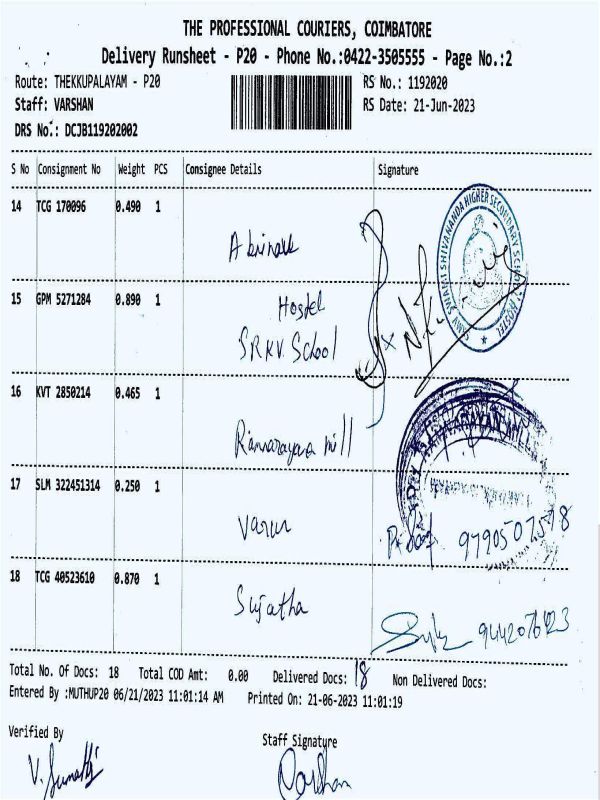 THE PROFESSIONAL COURIERS, COIMBATORE
Delivery Runsheet - P20 - Phone No.:0422-3505555 - Page No.:2
Route: THEKKUPALAYAM - P20 RS No.: 1192020
Staff: VARSHAN RS Date: 21-Jun-2023
DRS No.: DCJB119202002
S No Consignment No Weight PCS Consignee Details Signature
14 TCG 170096 0.490 1
15 GPM 5271284 0.890 1 Hostel
SRKV. School
16 KVT 2850214 0.465 1
Ramarayana mill
17 SLM 322451314 0.250 1
Varun 9790507578
18 TCG 40523610 0.870 1
Sujatha
Total No. Of Docs: 18 Total COD Amt: 0.00 Delivered Docs: 18 Non Delivered Docs:
Entered By :MUTHUP20 06/21/2023 11:01:14 AM Printed On: 21-06-2023 11:01:19
Verified By Staff Signature
Varshan